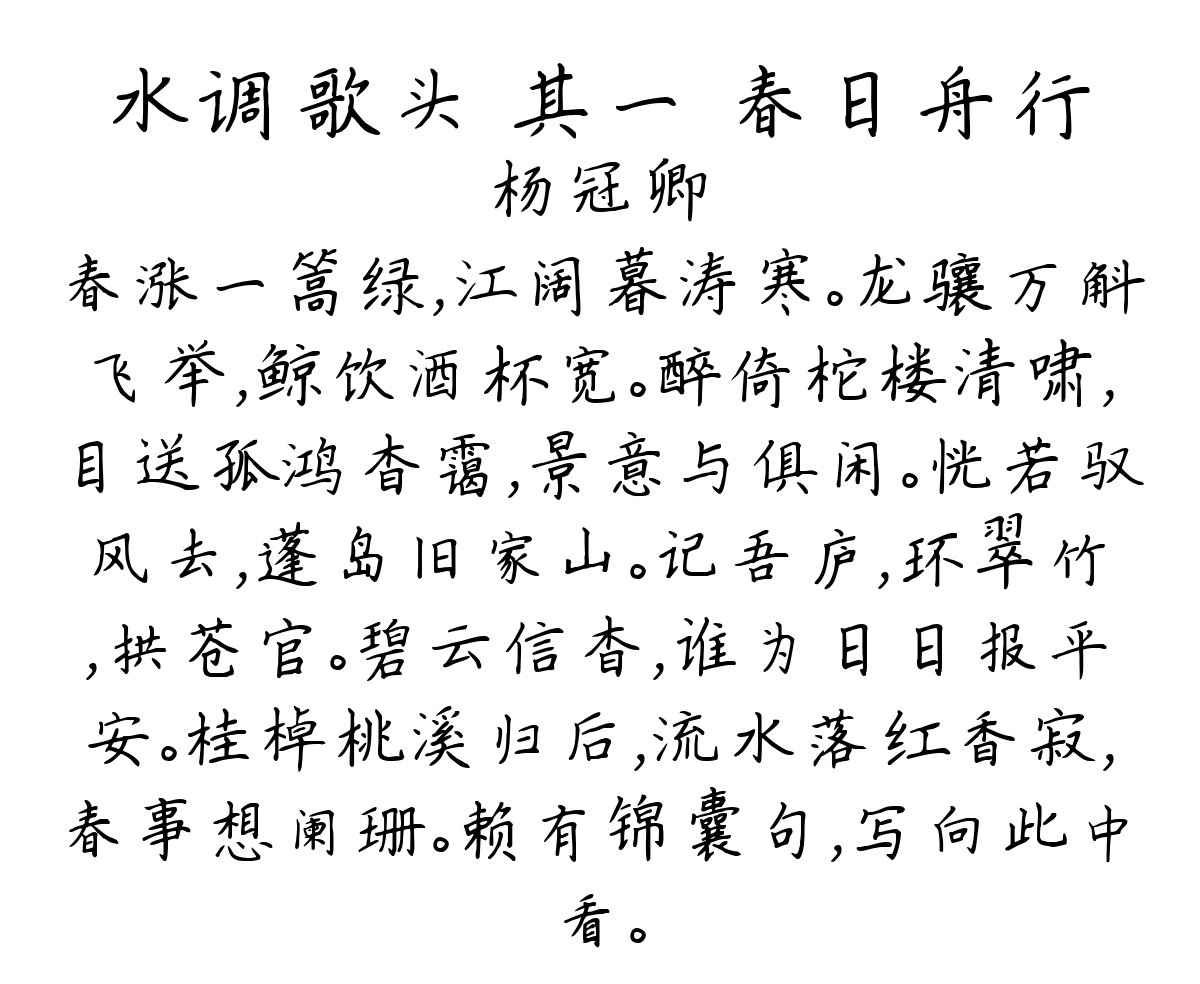 水调歌头 其一 春日舟行
杨冠卿
春涨一篙绿,江阔暮涛寒。龙骧万斛
飞举,鲸饮酒杯宽。醉倚柁楼清啸,
目送孤鸿杳霭,景意与俱闲。恍若驭
风去,蓬岛旧家山。记吾庐,环翠竹
,拱苍官。碧云信杳,谁为日日报平
安。桂棹桃溪归后,流水落红香寂,
春事想阑珊。赖有锦囊句,写向此中
看。